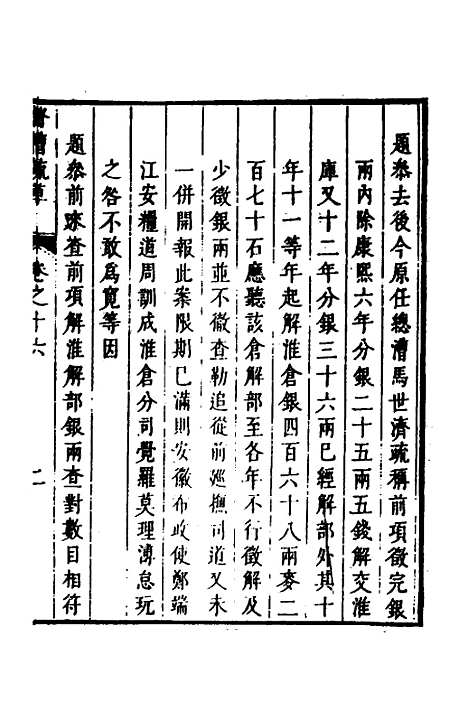 題叅去後今原任總漕馬世濟疏稱前項徵完銀
兩內除康熙六年分銀二十五兩五錢解交淮
庫又十二年分銀三十六兩已經解部外其十
年十一等年起解淮倉銀四百六十八兩麥二
百七十石應聽該倉解部至各年不行徵解及
少徵銀兩並不徹查勒追從前廵撫司道又未
一併開報此案限期已滿則安徽布政使鄭端
江安糧道周訓成淮倉分司覺羅莫理溥怠玩
之咎不敢爲寬等因
題叅前來查前項解淮解部銀兩查對數目相符
卷之十六
二